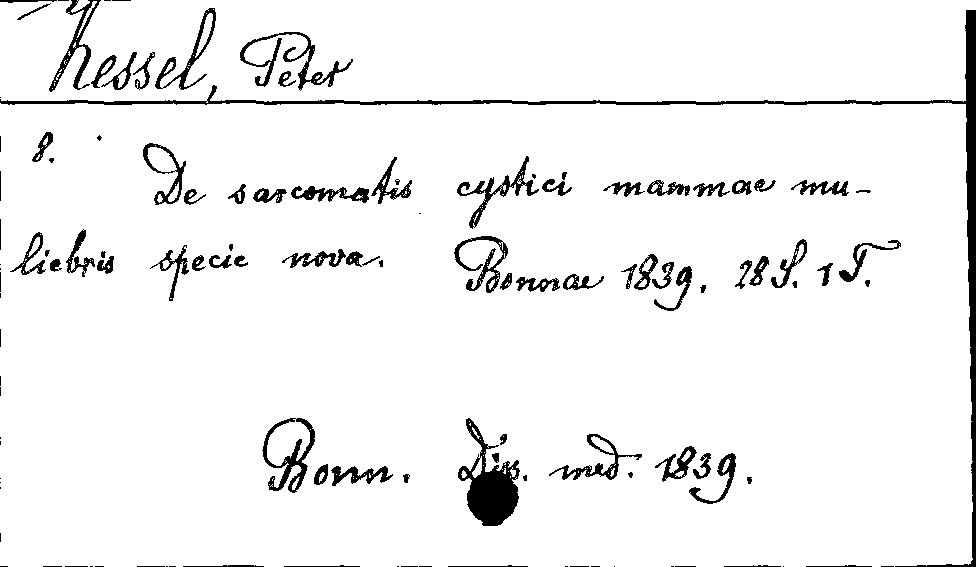 Kessel, Peter
8.
De sarcomatis cystici mammae mu-
liebris specie nova. Bonnae 1839. 28 S. 1 T.
Bonn. Diss. med. 1839.